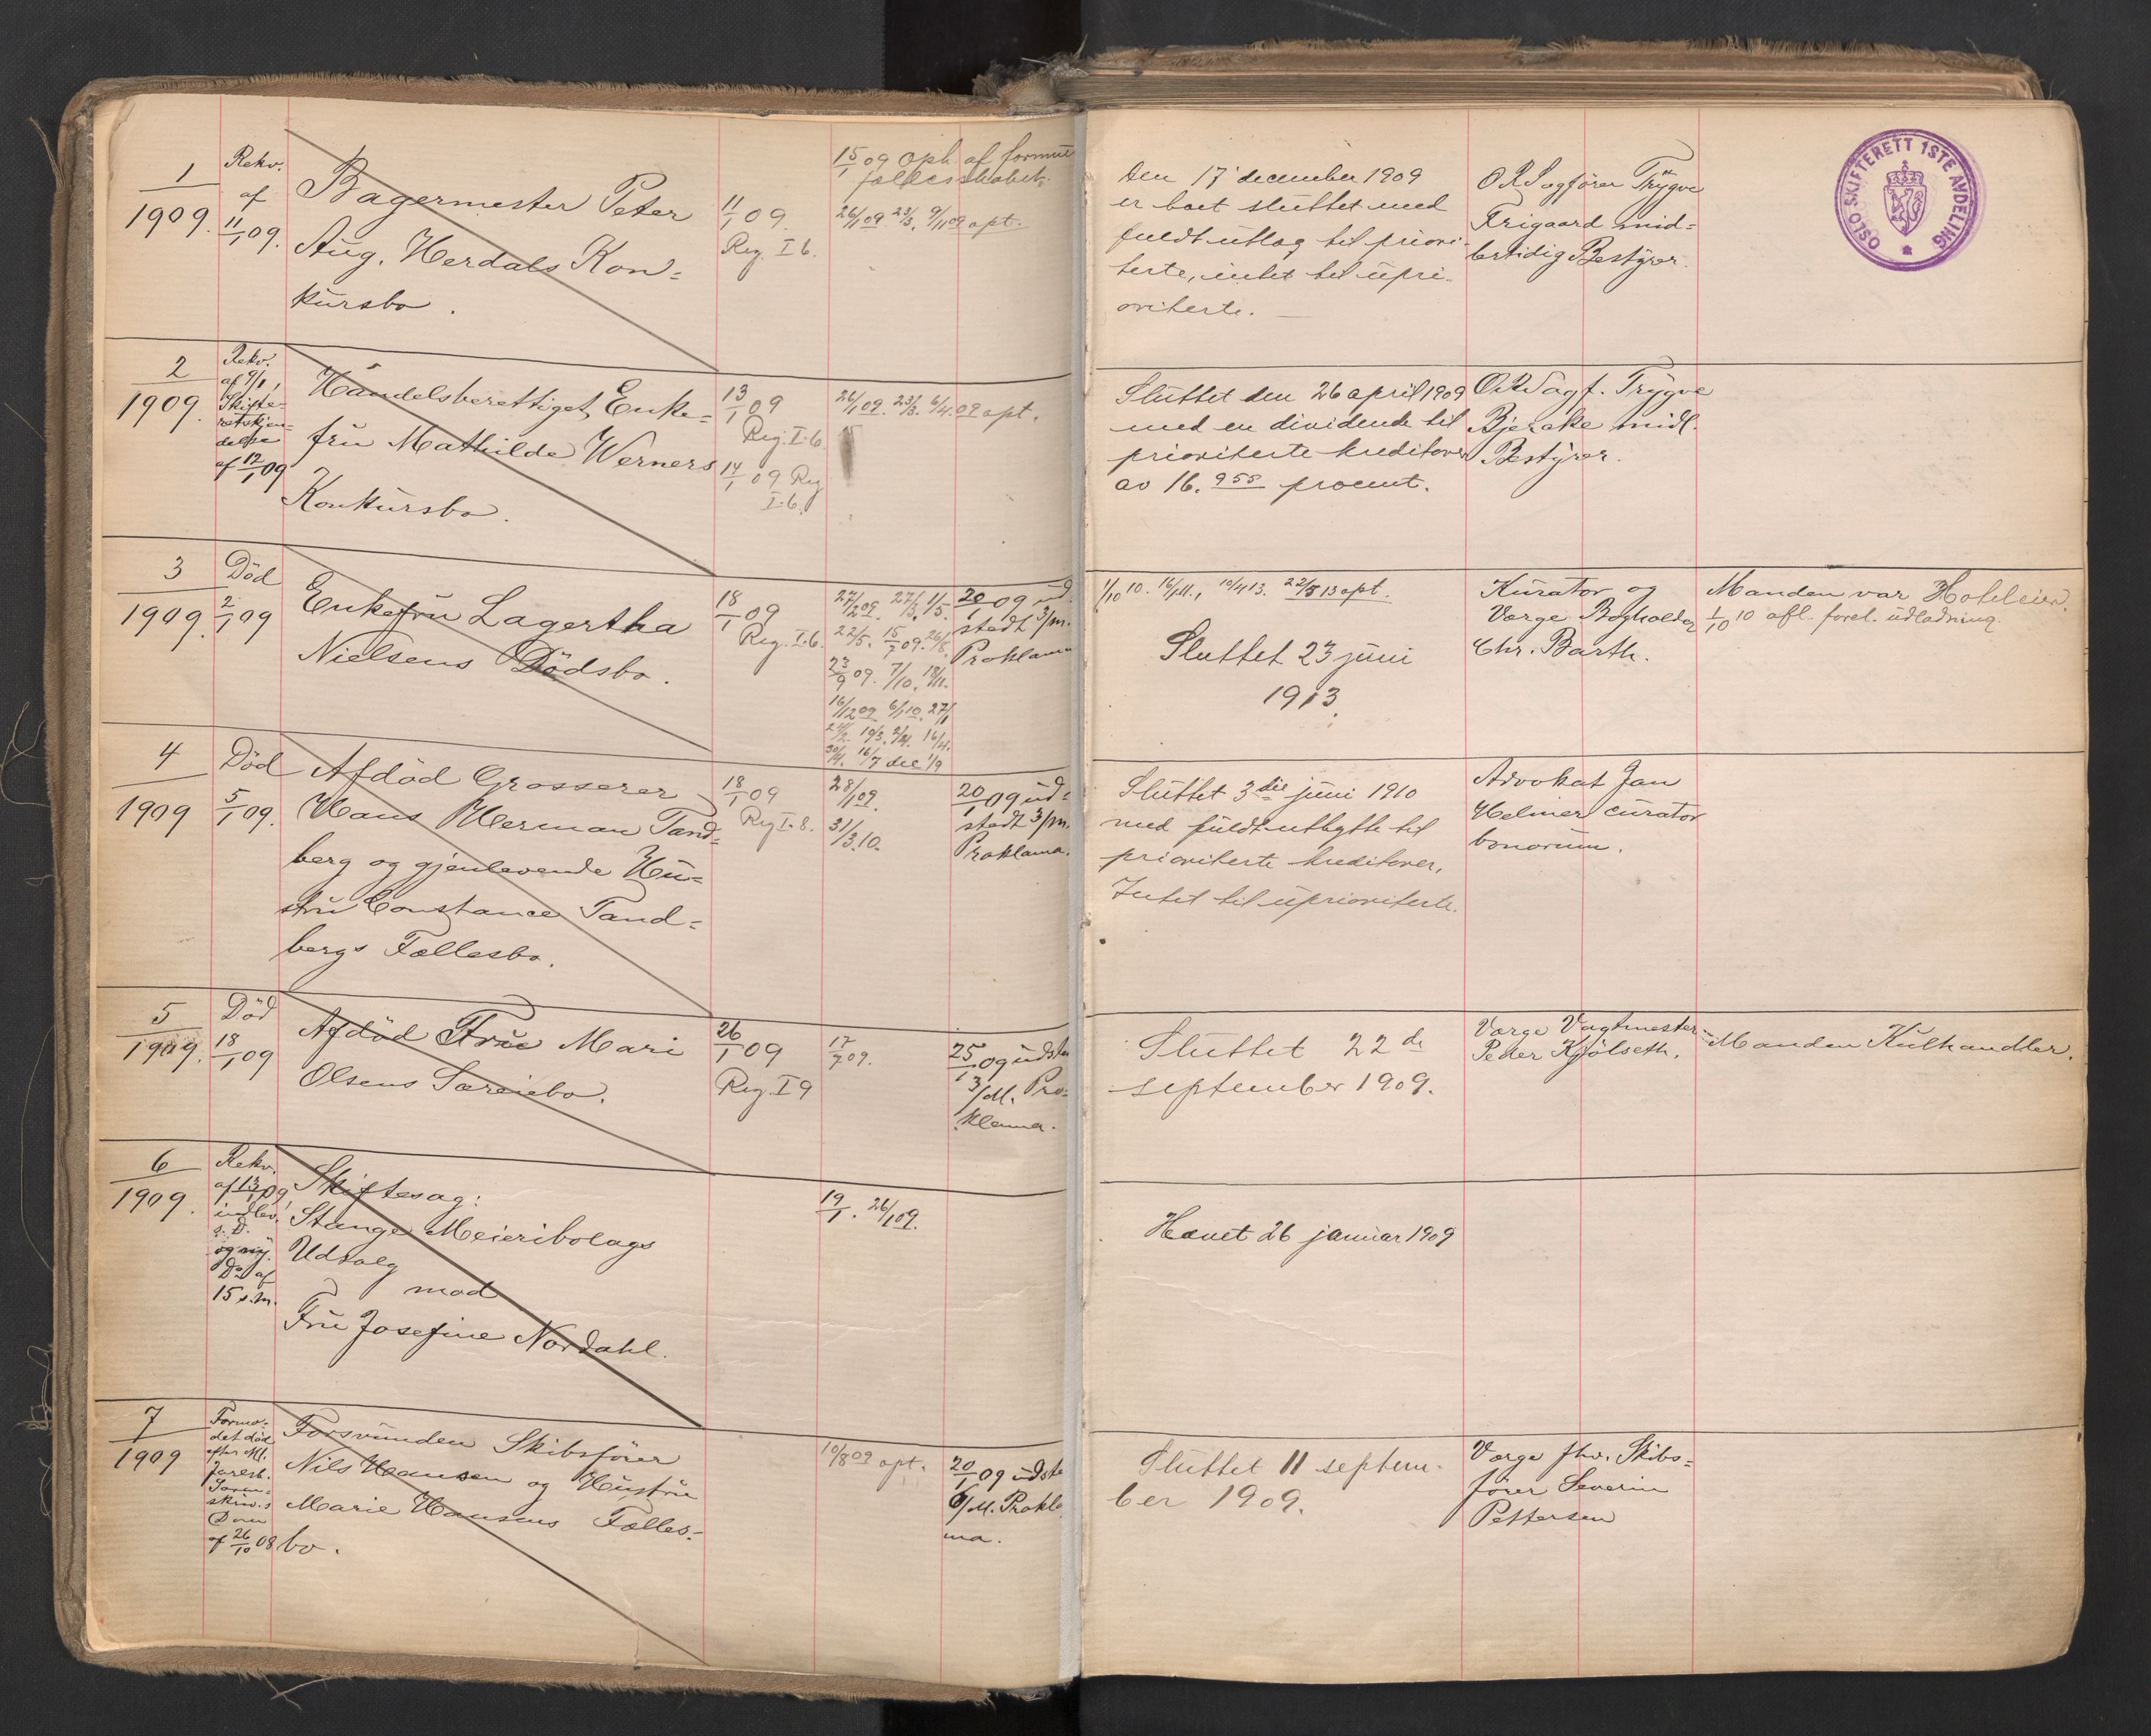 1
1909.
Rekv.
af
11/1 09.
Bagermester Peter
Aug. Herdals Kon=
kursbo.
11/1 09.
Reg. I 6.
15/1 09 Oph. af formue
fællesskabet.
26/1 09. 23/3. 9/11 09 opt.
Den 17 december 1909
er boet sluttet med
fuldt utlæg til priori-
terte, intet til upri-
oriterte.
O R Sagfører Trygve
Frigaard mid=
lertidig Bestyrer.
OSLO SKIFTERETT 1STE AVDELING
2
1909.
Rekv.
af 9/1,
Skifte-
retskjen-
delse
af 12/1 09
Handelsberettiget Enke=
fru Mathilde Werners
Konkursbo.
13/1 09
Reg. I. 6
14/1 09 Reg
I. 6.
26/1 09. 23/3. 6/4 09 opt.
Sluttet den 26 april 1909
med en dividende til
prioriterte kreditorer
av 16.955 procent.
O.R.Sagf. Trygve
Bjerake midl.
Bestyrer.
3
1909.
Död
2/1 09
Enkefru Lagertha
Nielsens Dödsbo.
18/1 09
Reg. I. 6.
27/2 09. 27/3. 1/5.
22/5. 15/7 09. 26/8.
23/9 09. 7/10. 18/11.
16/12 09 6/1 10. 27/1
24/2. 19/3. 2/4. 16/4.
30/4. 16/7 dec 1/9
20/1 09 ud-
stedt 3/m.
Proklama
1/10 10. 16/11., 10/4 13. 22/5 13 opt.
Sluttet 23 juni
1913.
Kurator og
Værge Bogholder
Chr. Barth.
Manden var Hoteleier.
1/10 10 afl. forel. udlodning.
4
1909
Död
5/1 09.
Afdöd Grosserer
Hans Herman Tand=
berg og gjenlevende Hu=
stru Constance Tand=
bergs Fællesbo.
18/1 09
Reg I. 8.
28/1 09.
31/3.10.
20/1 09 ud=
stedt 3/m.
Proklama.
Sluttet 3die juni 1910
med fuldt utbytte til
prioriterte kreditorer,
Intet til uprioriterte.
Advokat Jan
Helmer curator
bonorum.
5
1909.
Död
18/1 09
Afdöd Fru Mari
Olsens Særeiebo.
26/1 09
Reg. I 9
17/7 09.
25/1 09 udste
3/M. Pro=
klama.
Sluttet 22de
september 1909.
Værge Vagtmester
Peder Kjölseth.
Manden Kulhandler.
6
1909.
Rekv.
af 13/1 09,
indlev.
s. D.
og ny.
Do af
15 s.m.
Skiftesag:
Stange Meieribolags
Udsalg
mod
Fru Josefine Nordahl.
19/1. 26/1 09.
Hævet 26 januar 1909
7
1909
Formo-
det död
efter Ml.
Jarlsb.
Soren-
skriv.s
Dom
af 26/10 08
Forsvunden Skibsförer
Nils Hansen og Hustru
Marie Hansens Fælles=
bo.
10/8 09 opt.
20/1 09 udste
6/M. Prokla
ma.
Sluttet 11 septem-
ber 1909.
Værge fhv. Skibs=
förer Severin
Pettersen